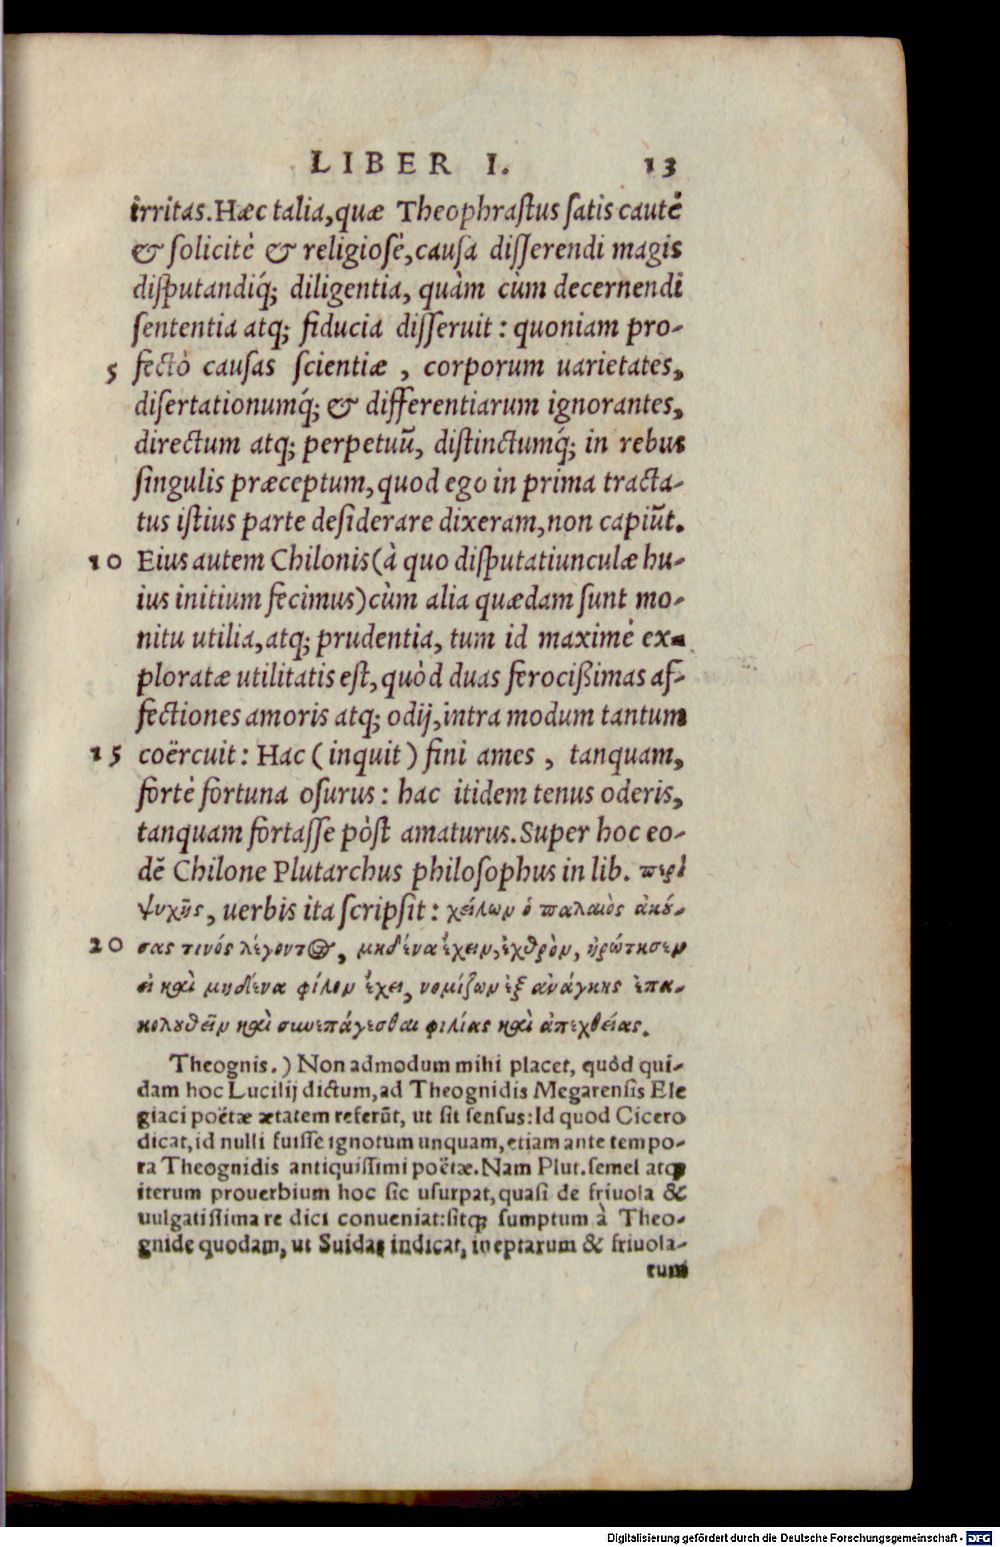 LIBER I. 13
irritas. Hæc talia, quæ Theophraſtus ſatis cautè
& ſolicitè & religioſè, cauſa diſſerendi magis
diſputandiq́; diligentia, quàm cùm decernendi
ſententia atq; fiducia diſſeruit: quoniam pro-
5 fectò cauſas ſcientiæ, corporum uarietates,
diſertationumq́; & differentiarum ignorantes,
directum atq; perpetuũ, diſtinctumq́; in rebus
ſingulis præceptum, quod ego in prima tracta-
tus iſtius parte deſiderare dixeram, non capiũt.
10 Eius autem Chilonis (à quo diſputatiunculæ hu-
ius initium fecimus) cùm alia quædam ſunt mo-
nitu utilia, atq; prudentia, tum id maximè ex-
ploratæ utilitatis eſt, quòd duas ferocißimas af-
fectiones amoris atq; odij, intra modum tantum
15 coërcuit: Hac (inquit) fini ames, tanquam,
fortè fortuna oſurus: hac itidem tenus oderis,
tanquam fortaſſe pòſt amaturus. Super hoc eo-
dẽ Chilone Plutarchus philoſophus in lib. περὶ
ψυχῆς, uerbis ita ſcripſit: χείλων ὁ παλαιὸς ἀκού-
20 σας τινός λέγοντος, μηδένα ἔχειν, ἐχθρὸν, ἠρώτησεν
εἰ καὶ μηδένα φίλον ἔχει, νομίζων ἐξ ἀνάγκης ἐπα-
κολουθεῖν καὶ συνεπάγεσθαι φιλίας καὶ ἀπεχθείας.
Theognis.) Non admodum mihi placet, quòd qui-
dam hoc Lucilij dictum, ad Theognidis Megarenſis Ele
giaci poëtæ ætatem referũt, ut ſit ſenſus: Id quod Cicero
dicat, id nulli fuiſſe ignotum unquam, etiam ante tempo-
ra Theognidis antiquiſſimi poëtæ. Nam Plut. ſemel atq;
iterum prouerbium hoc ſic uſurpat, quaſi de friuola &
uulgatiſſima re dici conueniat: ſitq; ſumptum à Theo-
gnide quodam, ut Suidas indicat, ineptarum & friuola-
rum
Digitalisierung gefördert durch die Deutsche Forschungsgemeinschaft - DFG